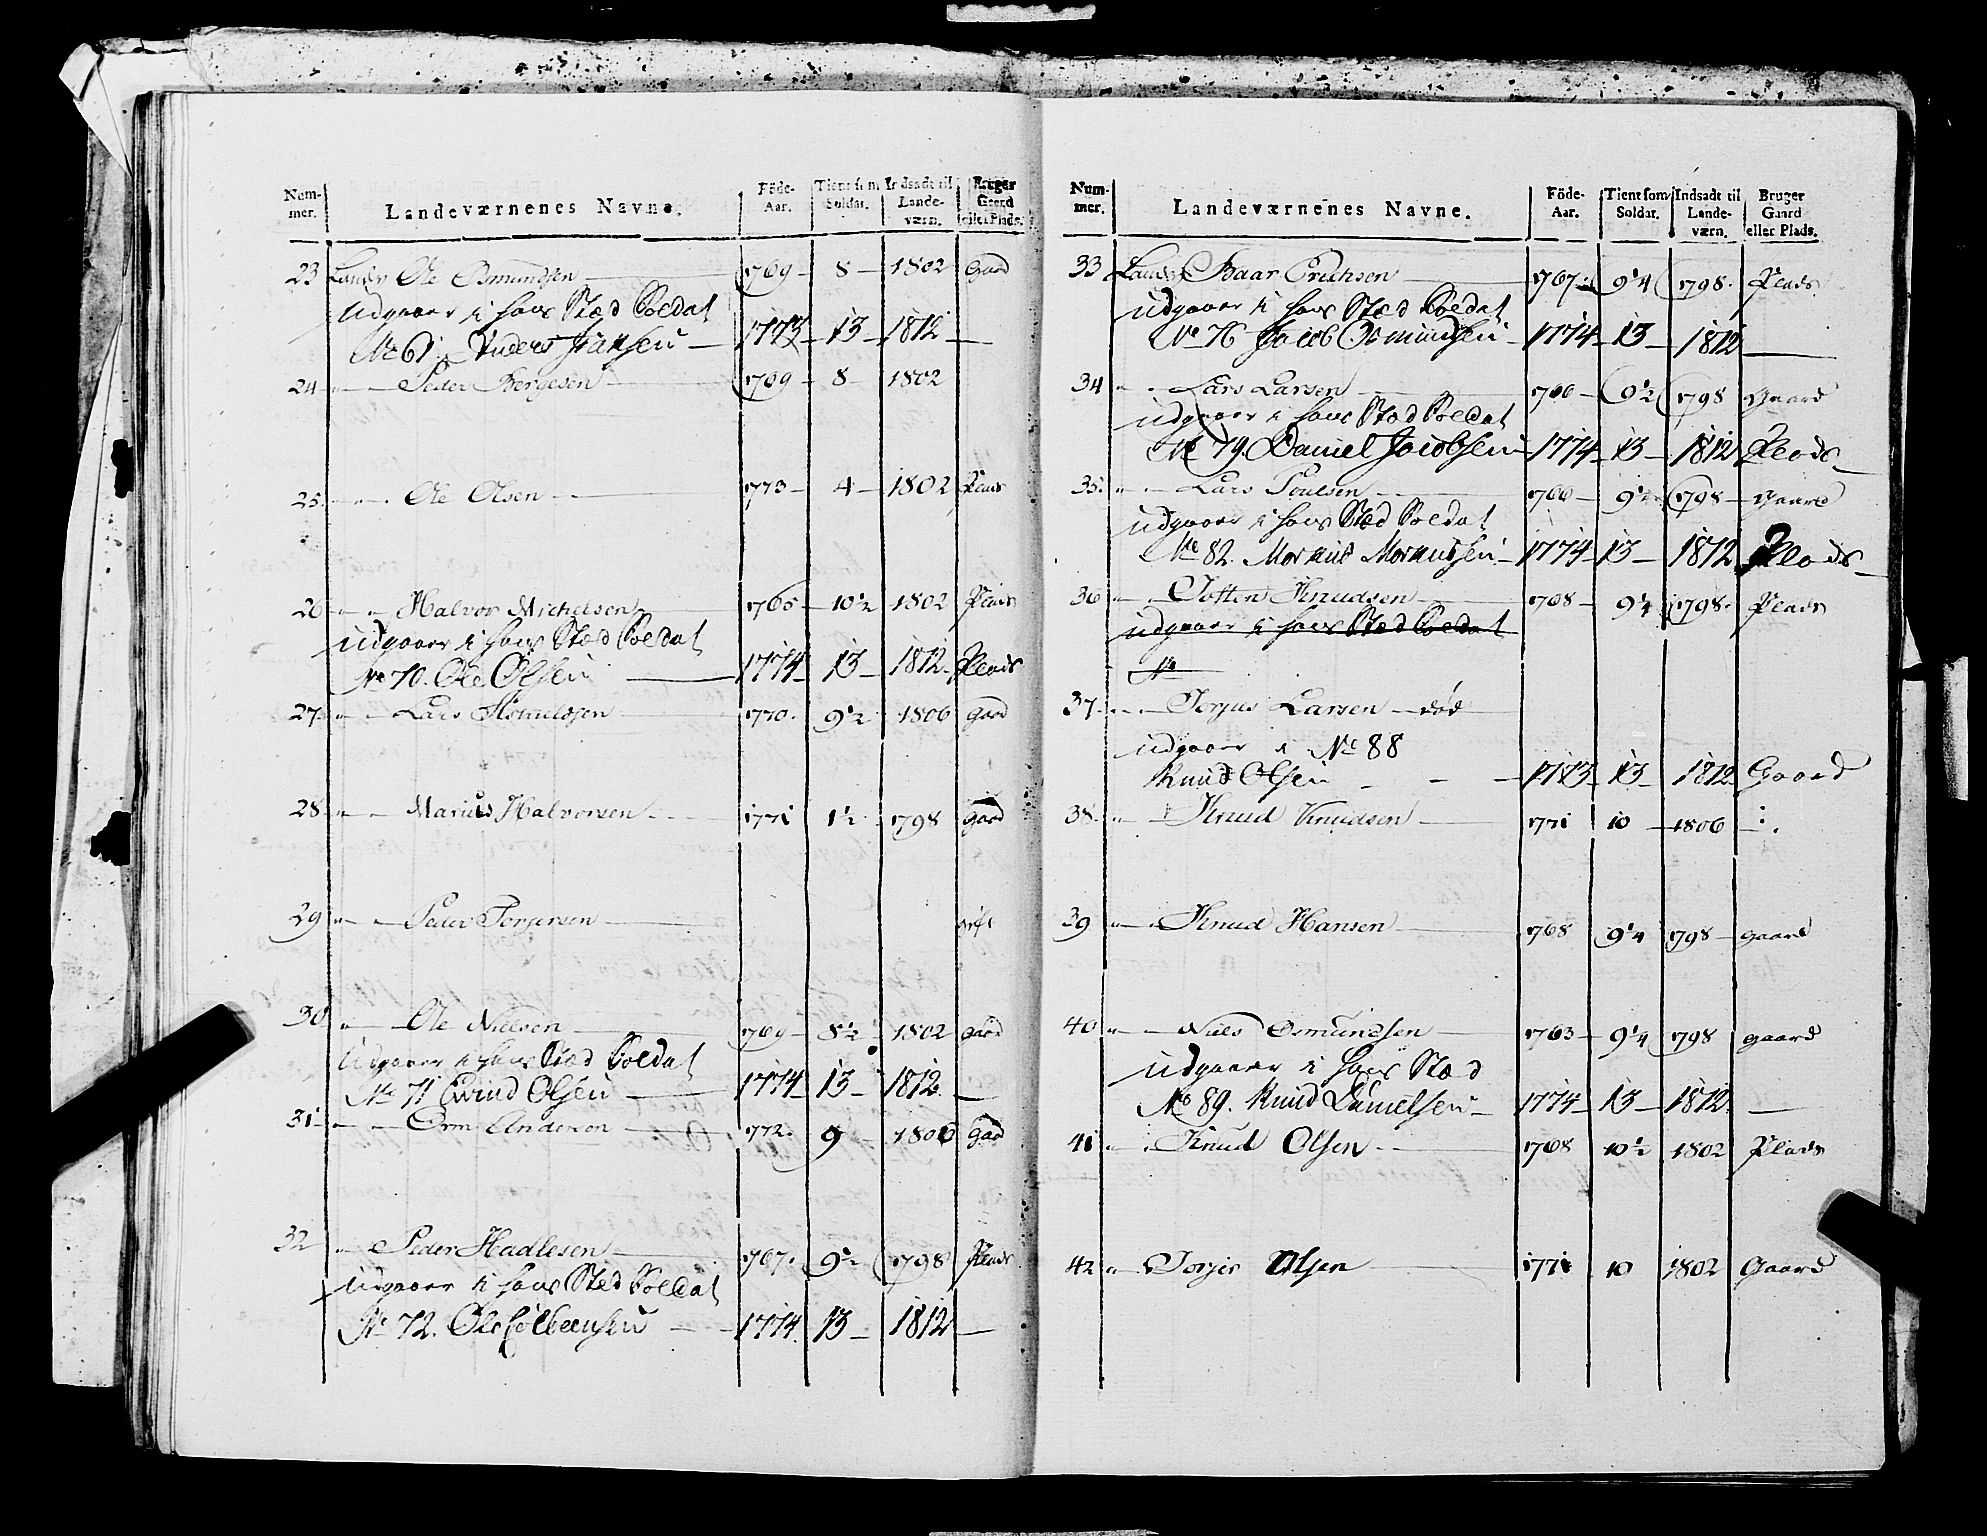 Num-
mer. Landeværnenes Navne. Föde-
Aar. Tient som
Soldat. Indsadt til
Lande-
værn. Bruger
Gaard
eller Plads.
23 Landv Ole Osmundsen 1769 8 1802 Gaard
udgaaer i hans Stæd Soldat
No 61. Anders Jransen 1773 13 1812
24 " Peder Bergesen 1769 8 1802
25. " Ole Olsen 1773 4 1802 Plads
26 " Halvor Michelsen 1765 10½ 1802 Plads
udgaaer i hans Stæd Soldat
No 70. Ole Olsen 1774 13 1812 Plads
27. " Lars 1770. 9½ 1806 Gaard
28 " Marius Halvorsen 1771 1½ 1798 Gaard
29 " Peder Torgersen
30 " Ole Nielsen 1769 8½ 1802 Gaard
udgaaer i hans Stæd Soldat
No 71 Eivind Olsen 1774 13 1812.
31 " Orm Andersen 1772. 9 1806 Gaard
32 " Peder Hadlesen 1767. 9½ 1798 Plads
udgaaer i hans Stæd Soldat
No 72. Ole Colbeensen 1774. 13 1812
Num-
mer. Landeværnenes Navne. Föde-
Aar. Tient som
Soldat. Indsadt til
Lande-
værn. Bruger
Gaard
eller Plads.
33 Landv Baar Erichsen 1767 9¼ 1798. Plads
udgaaer i hans Stæd Soldat
No 76 Jacob Osmundsen 1774 13 1812
34 " Lars Larsen 1766 9½ 1798 Gaard
udgaaer i hans Stæd Soldat
No 79. Daniel Jacobsen 1774 13 1812 Plads
35. " Lars Poulsen 1766 9½ 1798 Gaard
udgaaer i hans Stæd Soldat
No 82. 1774 13 1812 Plads
36 " Totten Knudsen 1768 9¼ 1798. Plads
udgaaer i hans Stæd Soldat
No
37. " Torjus Larsen død
udgaaer i No 88
Knud Olsen 1773 13 1812 Gaard
38. " Knud Knudsen 1771 10 1806
39 " Knud Hansen 1768 9¼ 1798 gaard
40 " Niels Osmundsen 1763 9¼ 1798 gaard
udgaaer i hans Stæd
No 89. Knud Danielsen 1774 13 1812
41 " Knud Olsen 1768 10½ 1802 Plads
42 " Torjer Olsen 1771 10 1802 Gaard